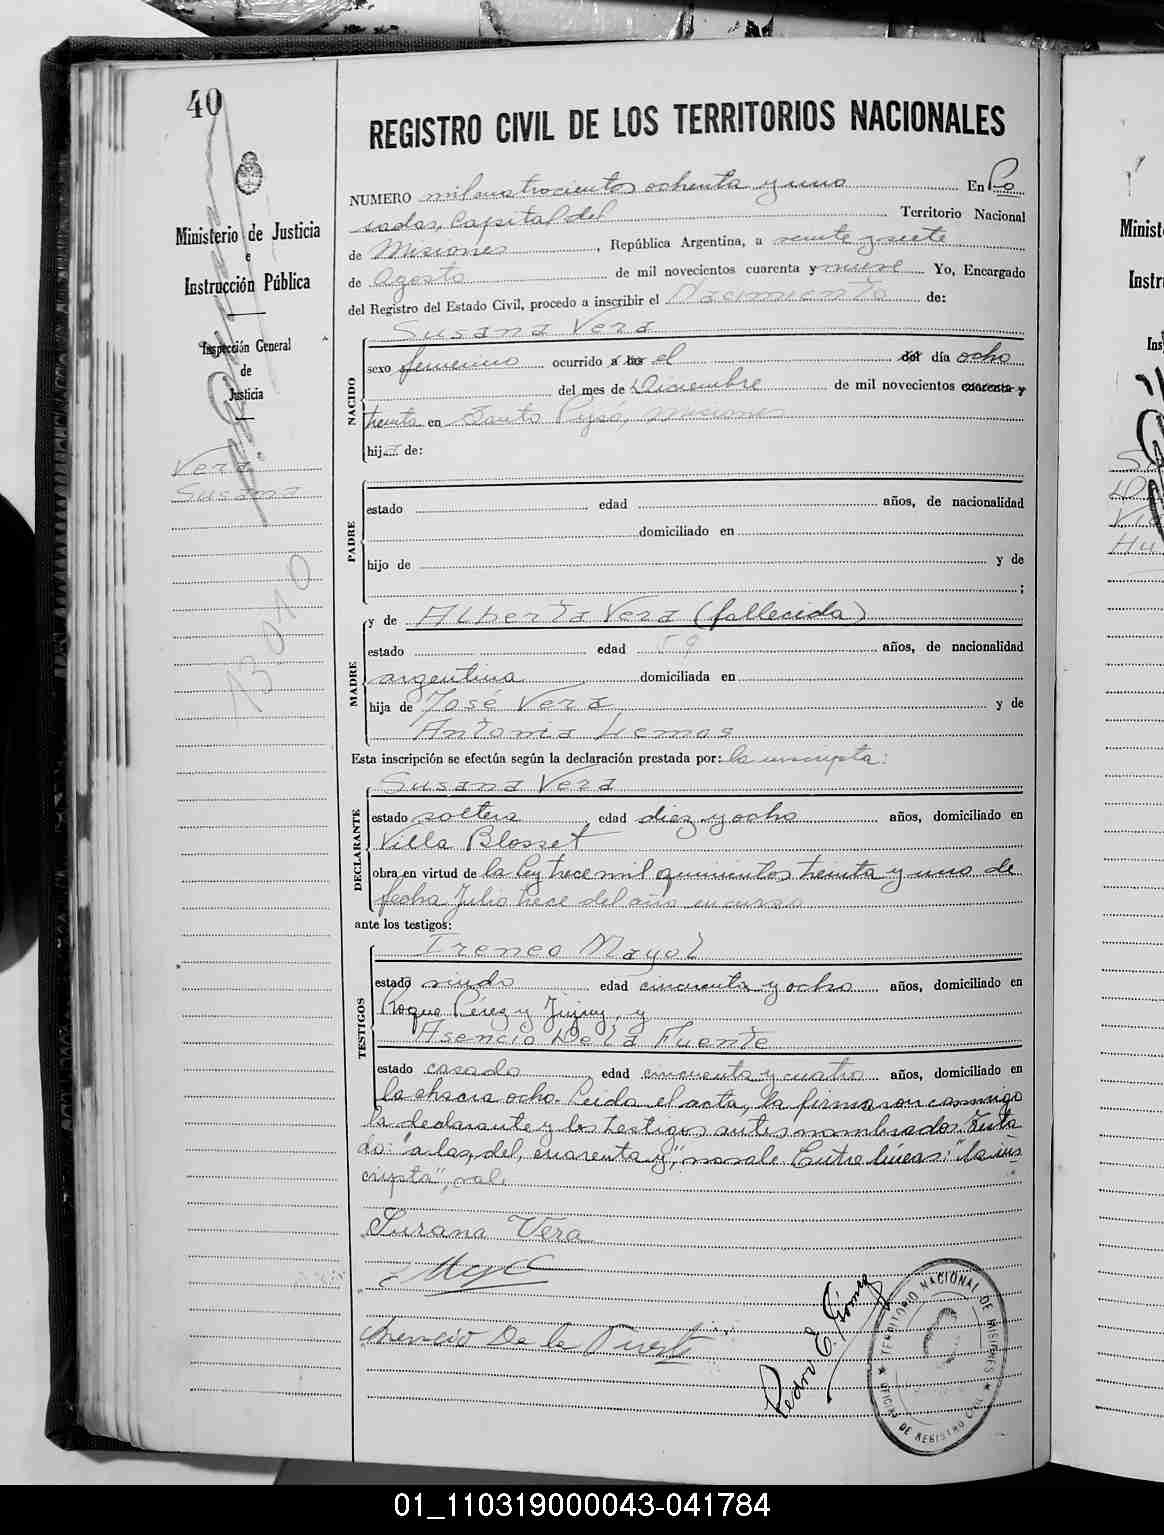 40
REGISTRO CIVIL DE LOS TERRITORIOS NACIONALES
Ministerio de Justicia
e
Instrucción Pública
Inspección General
de
Justicia
Vera
Susana
13.010
NUMERO mil cuatrocientos ochenta y uno En Po
sadas, Capital del Territorio Nacional
de Misiones, República Argentina, a veinte y siete
de Agosto de mil novecientos cuarenta y nueve Yo, Encargado
del Registro del Estado Civil, procedo a inscribir el Nacimiento de:
Susana Vera
NACIDO
sexo femenino ocurrido a las el del día ocho
del mes de Diciembre de mil novecientos cuarenta y
treinta en Santo Pipó, Misiones
hija de:
PADRE
estado edad años, de nacionalidad
domiciliado en
hijo de y de
;
MADRE
y de Alberta Vera (fallecida)
estado edad años, de nacionalidad
argentina domiciliada en
hija de José Vera y de
Antonia Lemos
Esta inscripción se efectúa según la declaración prestada por: la inscripta:
DECLARANTE
Susana Vera
estado soltera, edad diez y ocho años, domiciliado en
Villa Blosset
obra en virtud de la ley trece mil quinientos treinta y uno de
fecha Julio trece del año en curso
ante los testigos:
TESTIGOS
Ireneo Mayol
estado viudo edad cincuenta y ocho años, domiciliado en
Roque Pérez y Jujuy, y
Asencio De la Fuente
estado casado, edad cincuenta y cuatro años, domiciliado en
la chacra ocho. Leida el acta, la firmaron conmigo
la declarante y los testigos antes nombrados. Testa
do: "a las, del, cuarenta y," no vale. Entre líneas: "la ins
cripta", vale
Susana Vera
Asencio De la Fuente
Pedro E. Gómez
TERRITORIO NACIONAL DE MISIONES
OFICINA DE REGISTRO CIVIL
Minist
Instr
Ins
01_110319000043-041784